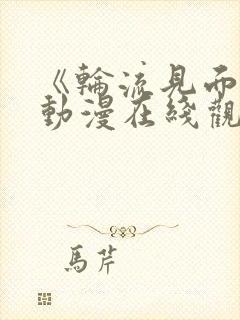 《輪流見而
動漫在綫觀
馬芹